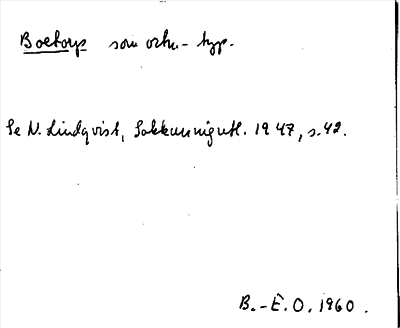 Boetorp som ortn.-typ.
Se N. Lindqvist, Sakkunnigutl. 1947, s. 42.
B.-E. O. 1960.